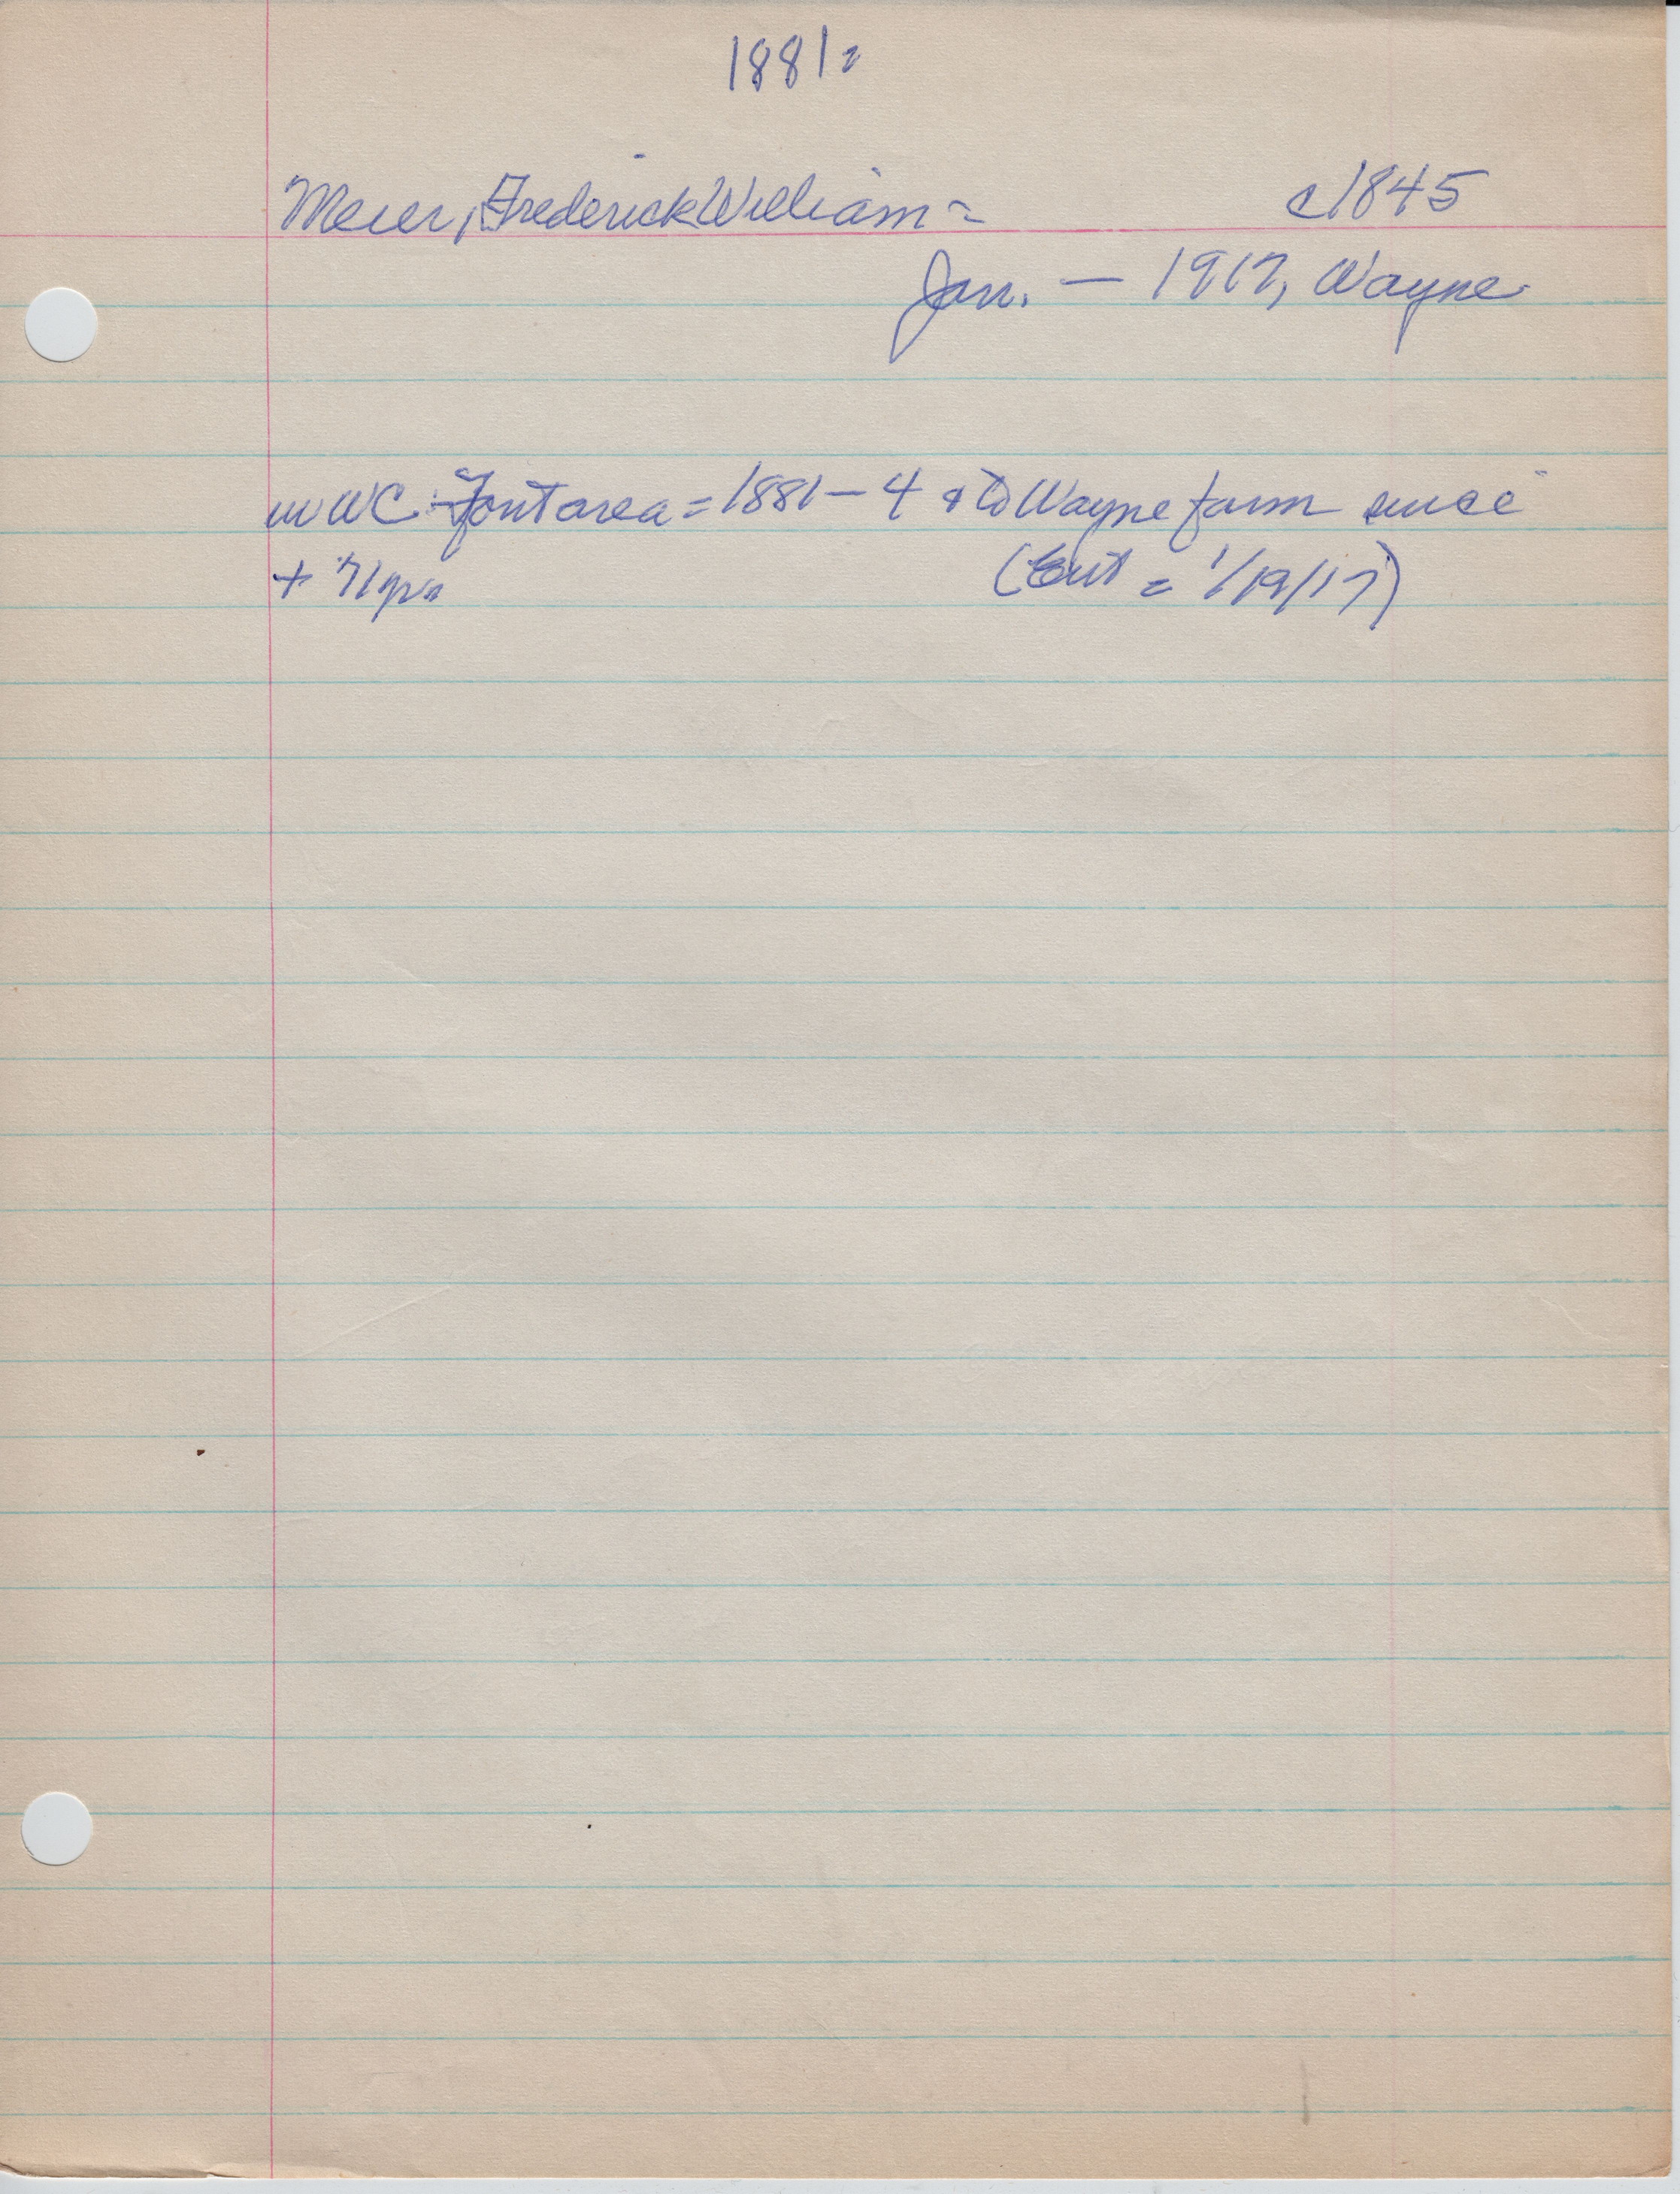 1881=
Meier, Frederick William = c1845
Jan. — 1917, Wayne
in WC: Font area = 1881 - 4 & to Wayne farm since
+ 71 yrs (Ent = 1/19/17)